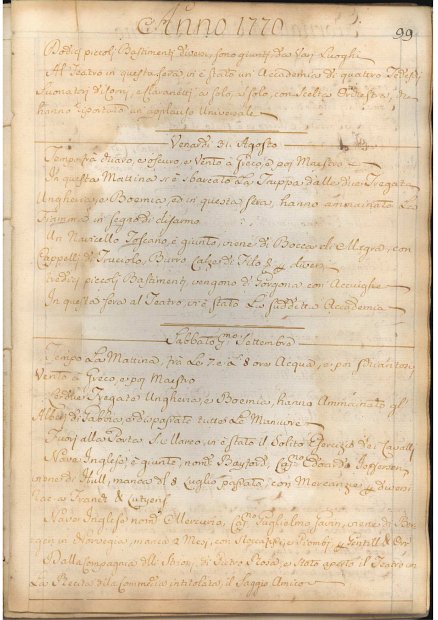 Anno 1770
99
Dodici piccoli Bastimenti diversi, sono giunti da Vari Luoghi
Al Teatro in questa sera vi è stato un' Accademia di quattro Tedeschi
Suonatori di Corni, e a solo, a solo, con Scelta Orchestra, che
hanno riportato un' aplauso Universale
Venerdi 31. Agosto
Tempo frà chiaro, e oscuro, e Vento à Greco, e poi Maestro
In questa Mattina si è sbarcato La Truppa dalle due Fregate
Ungheria, e Boemia, ed in questa sera, hanno ammainato La
Fiamma in segno di disarmo
Un Navicello Toscano, è giunto, viene di Bocca di Magra, con
Cappelli di Truciolo, Burro Calze di Filo & diversi
tredici piccoli Bastimenti, vengono di Gorgona con Acciughe
In questa sera al Teatro, vi è stato La suddetta Accademia
Sabbato p.mo Settembre
Tempo La Mattina, frà Le 7. e le 8 ore Acqua, e poi
Vento à Greco, e poi Maestro
Le due Fregate Ungheria, e Boemia, hanno Ammainato gl'
Alberi di Gabbia, e disparate tutte Le Manuvre
Fuori alla Porta S. Marco, vi è stato il Solito Esercizio di Cavalli
Nave Inglese, è giunta, nom.a Bayford, Cap.no Edoardo Jefferson,
viene di Hull, manca di 8 Luglio passato, con Mercanzie p diversi
Rac. a Franc.o &
Nave Inglese nom.a Mercurio, Cap.no Guglielmo viene di Ber-
gen in Norvegia, manca 2 Mesi, con Stocafissi, e Piombi p Gentill & Orr
Dalla Compagnia dell' Istrion. di Pietro Rosa, è stato aperto il Teatro con
La Recita della Commedia intitolata, il Saggio Amico